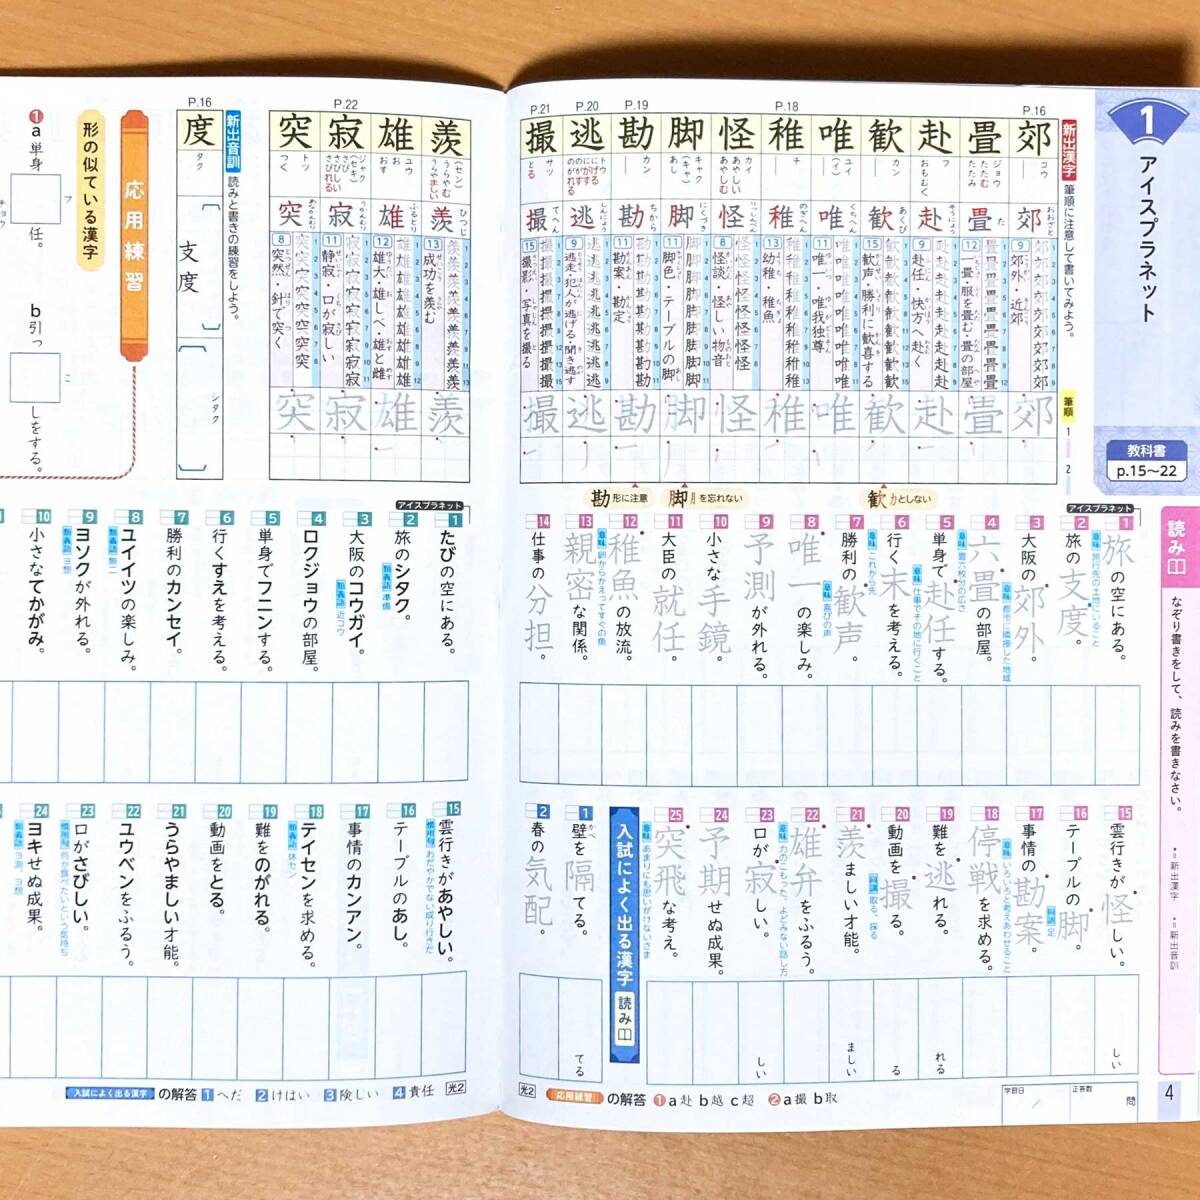 1
アイスプラネット
教科書
p.15〜22
新出漢字
筆順に注意して書いてみよう。
筆順
P.16
郊
コウ
おおざと
郊外・近郊
畳
ジョウ
たたむ
たたみ
た
一畳・服を畳む・畳の部屋
赴
フ
おもむく
そうにょう
赴任・快方へ赴く
歓
カン
あくび
歓声・勝利に歓喜する
唯
ユイ
(イ)
くちへん
唯一・唯我独尊
P.18
稚
チ
のぎへん
幼稚・稚魚
怪
カイ
あやしい
あやしむ
りっしんべん
怪談・怪しい物音
脚
キャク
(キャ)
あし
にくづき
脚色・テーブルの脚
P.19
勘
カン
ちから
勘案・勘定
P.20
逃
トウ
にげる
にがす
のがす
のがれる
しんにょう
逃走・犯人が逃げる・聞き逃す
P.21
撮
サツ
とる
てへん
撮影・写真を撮る
勘 形に注意
脚 を忘れない
歓 としない
P.22
羨
(セン)
うらやむ
うらやましい
ひつじ
成功を羨む
雄
ユウ
お
おす
ふるとり
雄大・雄しべ・雄と雌
寂
ジャク
(セキ)
さび
さびしい
さびれる
うかんむり
静寂・口が寂しい
突
トツ
つく
あなかんむり
突然・針で突く
新出音訓
読みと書きの練習をしよう。
P.16
度
タク
支度
シタク
応用練習
形の似ている漢字
1
a 単身□任。
フ
b 引っ□しをする。
こ
読み
なぞり書きをして、読みを書きなさい。
・=新出漢字 ・=新出音訓
アイスプラネット
1 旅の空にある。
意味 旅行先の土地にいること
2 旅の支度。
3 大阪の郊外。
意味 都市に隣接した地域
4 六畳の部屋。
意味 畳六枚分の広さ
5 単身で赴任する。
意味 仕事でその地に行くこと
6 行く末を考える。
意味 これから先
7 勝利の歓声。
意味 喜びの声
8 唯一の楽しみ。
9 予測が外れる。
10 小さな手鏡。
11 大臣の就任。
12 稚魚の放流。
意味 卵からかえってすぐの魚
13 親密な関係。
14 仕事の分担。
15 雲行きが怪しい。
しい
16 テーブルの脚。
同訓 足
17 事情の勘案。
意味 いろいろと考えあわせること
18 停戦を求める。
19 難を逃れる。
れる
20 動画を撮る。
同訓 取る、採る
る
21 羨ましい才能。
ましい
22 雄弁をふるう。
意味 力のこもった、よどみない話し方
23 口が寂しい。
しい
24 予期せぬ成果。
25 突飛な考え。
意味 あまりにも思いがけないさま
入試によく出る漢字 読み
1 壁を隔てる。
かべ
てる
2 春の気配。
アイスプラネット
1 たびの空にある。
2 旅のシタク。
類義語 準備
3 大阪のコウガイ。
類義語 近コウ
4 ロクジョウの部屋。
5 単身でフニンする。
6 行くすえを考える。
7 勝利のカンセイ。
8 ユイイツの楽しみ。
類義語 無二
9 ヨソクが外れる。
類義語 ヨ想
10 小さなてかがみ。
15 雲行きがあやしい。
慣用句 おだやかでない成り行きだ
16 テーブルのあし。
17 事情のカンアン。
18 テイセンを求める。
類義語 休セン
19 難をのがれる。
20 動画をとる。
21 うらやましい才能。
22 ユウベンをふるう。
23 口がさびしい。
慣用句 何か食べたいという気持ち
24 ヨキせぬ成果。
類義語 ヨ測、ヨ想
入試によく出る漢字 の解答 1へだ 2けはい 3険しい 4責任
光2
光2
応用練習 の解答 1 a赴 b越 c超 2 a撮 b取
学習日
正答数
問
4